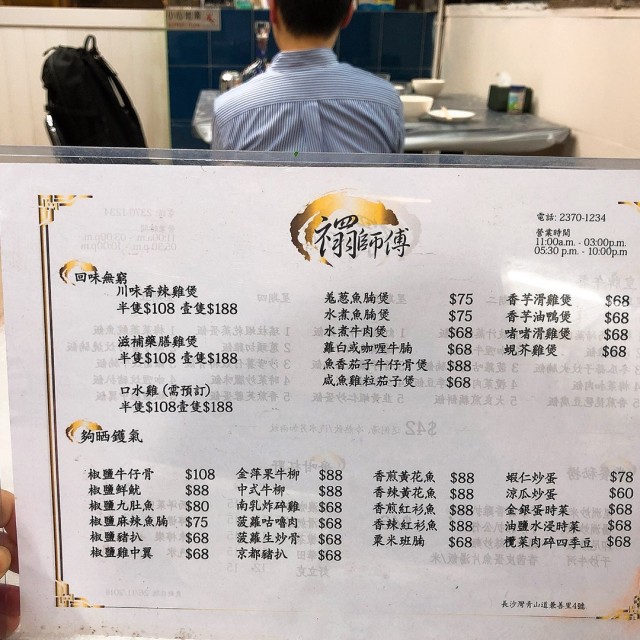 禤師傅
電話: 2370-1234
營業時間
11:00a.m. - 03:00p.m.
05:30 p.m. - 10:00pm
回味無窮
川味香辣雞煲
半隻$108 壹隻$188
滋補藥膳雞煲
半隻$108 壹隻$188
口水雞 (需預訂)
半隻$108壹隻$188
羗葱魚腩煲 $75
水煮魚腩煲 $75
水煮牛肉煲 $68
蘿白或咖喱牛腩 $68
魚香茄子牛仔骨煲 $88
咸魚雞粒茄子煲 $68
香芋滑雞煲 $68
香芋油鴨煲 $68
啫啫滑雞煲 $68
蜆芥雞煲 $68
夠晒鑊氣
椒鹽牛仔骨 $108
椒鹽鮮魷 $88
椒鹽九肚魚 $80
椒鹽麻辣魚腩 $75
椒鹽豬扒 $68
椒鹽雞中翼 $68
金苹果牛柳 $88
中式牛柳 $88
南乳炸碎雞 $68
菠蘿咕嚕肉 $68
菠蘿生炒骨 $68
京都豬扒 $68
香煎黃花魚 $88
香辣黃花魚 $88
香煎紅衫魚 $88
香辣紅衫魚 $88
粟米班腩 $68
蝦仁炒蛋 $78
涼瓜炒蛋 $60
金銀蛋時菜 $68
油鹽水浸時菜 $68
欖菜肉碎四季豆 $68
長沙灣青山道兼善里4號